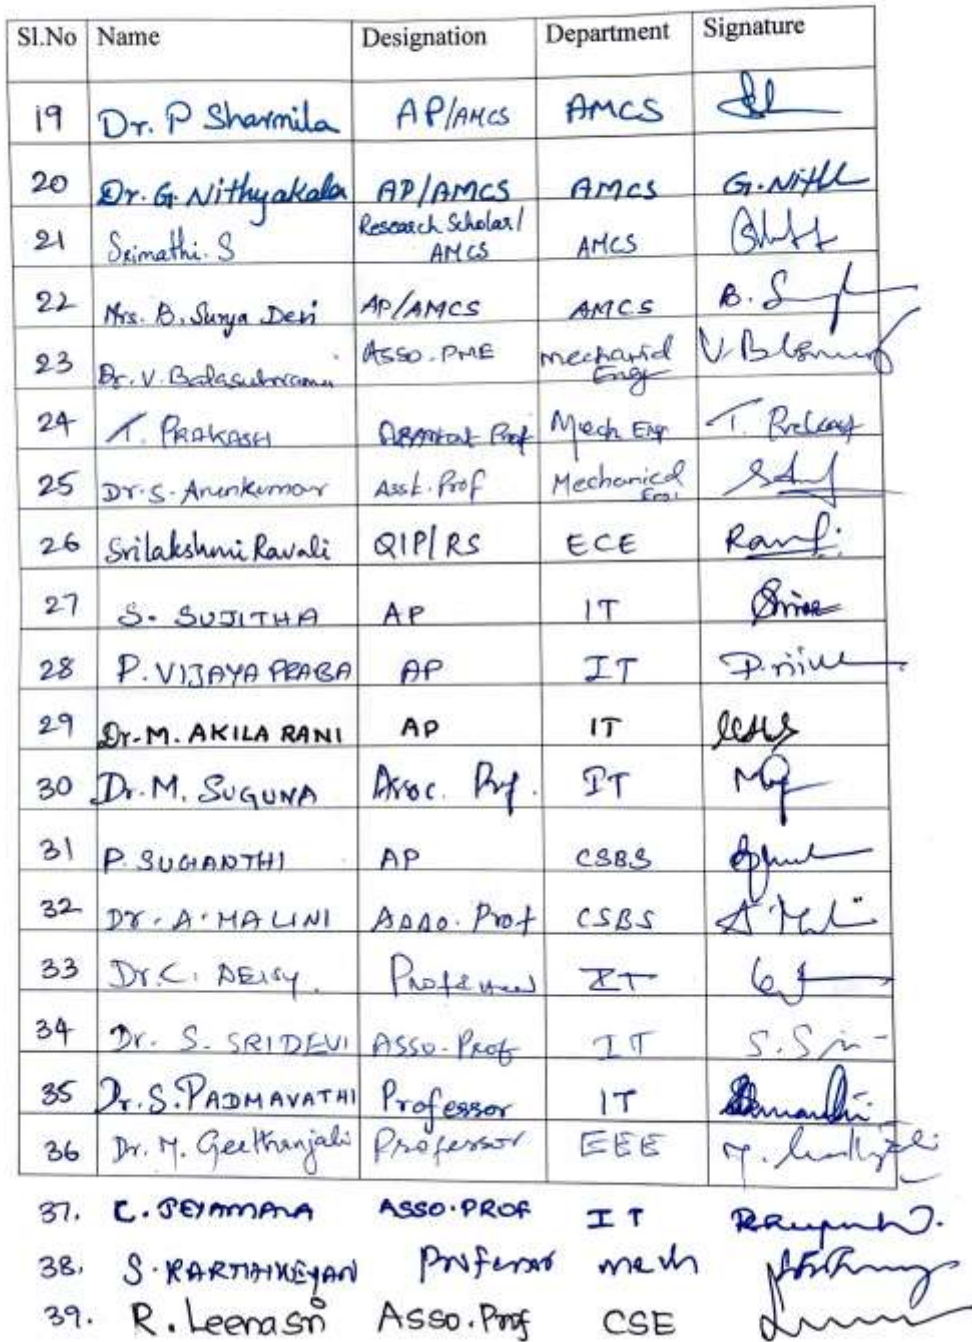 Sl.No Name Designation Department Signature
19 Dr. P Sharmila AP/AMCS AMCS
20 Dr. G. Nithyakala AP/AMCS AMCS G. Nith
21 Srimathi. S Research Scholar/ AMCS AMCS
22 Mrs. B. Surya Devi AP/AMCS AMCS B. S
23 Dr. V. Balasubramani Asso. Mechanical Engg
24 T. PRAKASH Prof Mech Engr T. Prakash
25 Dr. S. Arunkumar Asst. Prof Mechanical Eng.
26 Srilakshmi Ravali QIP/RS ECE
27 S. SUJITHA AP IT
28 P. VIJAYA PRABA AP IT
29 Dr. M. AKILA RANI AP IT
30 Dr. M. SUGUNA Assoc. Prof. IT
31 P. SUGANTHI AP CSBS
32 Dr. A. MALINI Asso. Prof CSBS
33 Dr. C. DEISY. Professor IT
34 Dr. S. SRIDEVI ASSO. Prof IT
35 Dr. S. PADMAVATHI Professor IT
36 Dr. M. Geethanjali Professor EEE
37. C. JEYAMALA ASSO. PROF IT
38. S. KARTHIKEYAN Professor mech
39. R. Leenasri Asso. Prof CSE